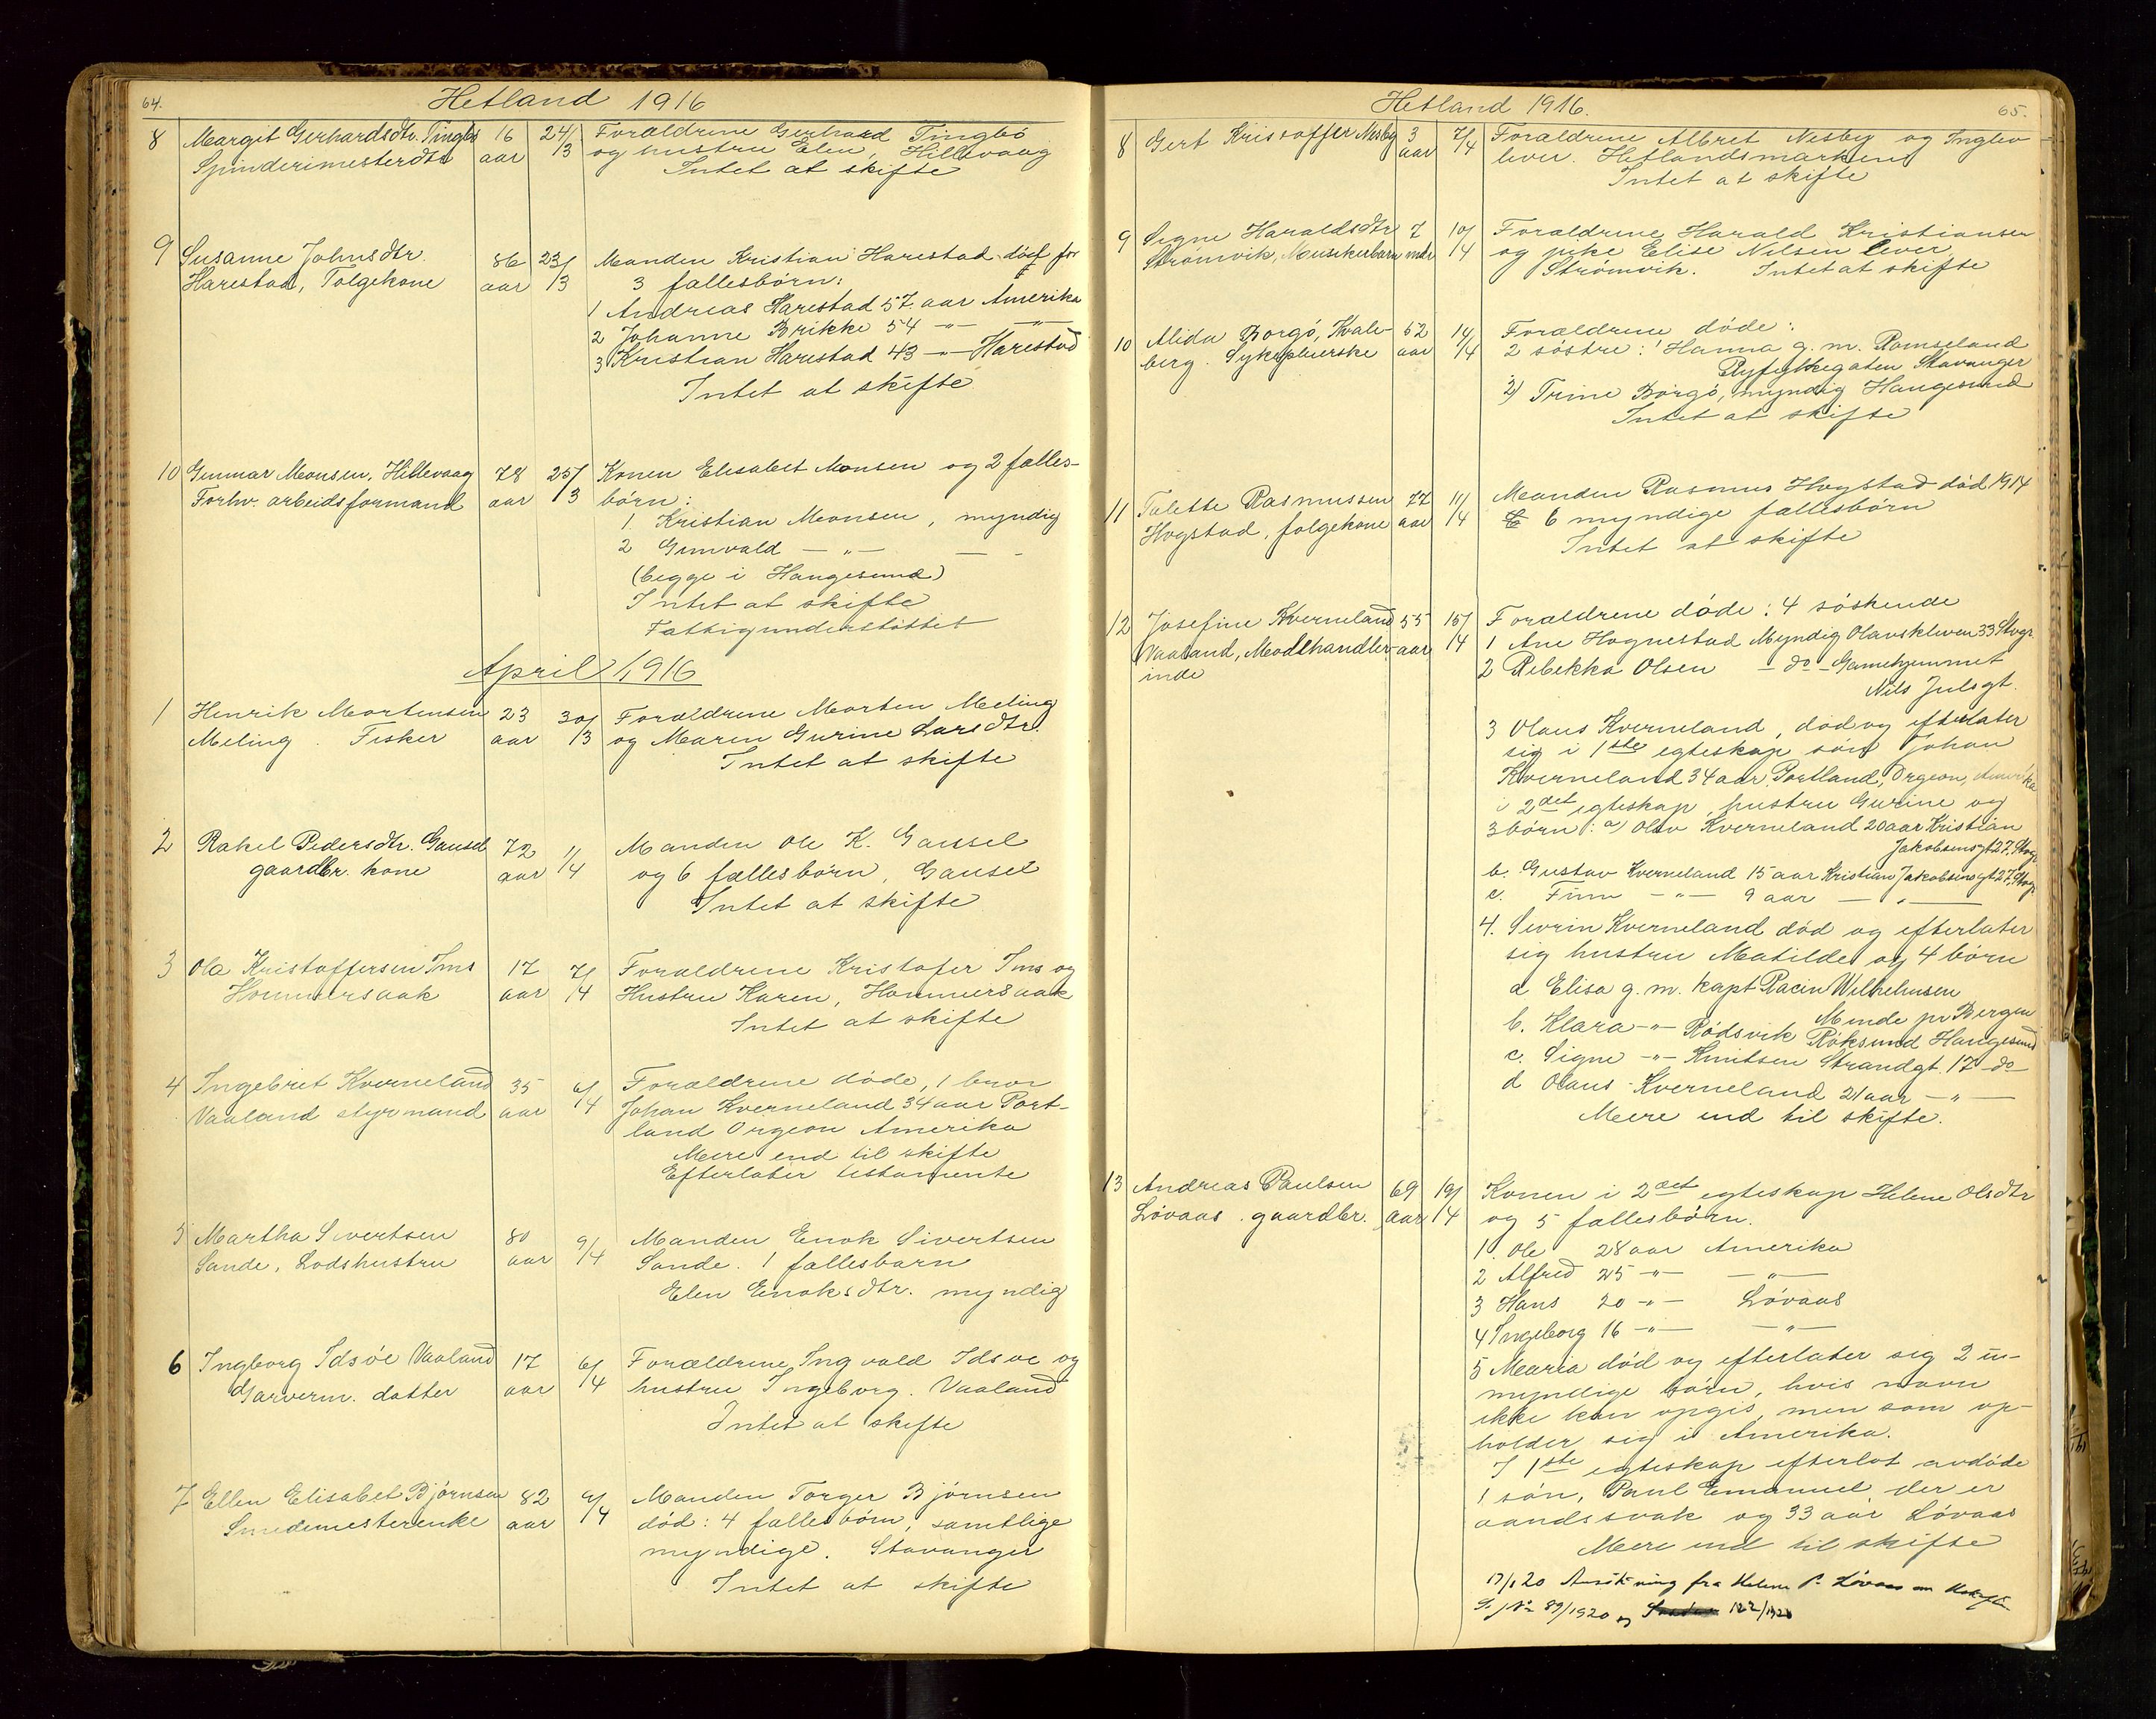 64.
Hetland 1916
8 Margit Gerhardsdtr. Tingbö 16 24/3 Forældrene Gerhard Tingbö
Spinderimesterdtr aar og hustru Elen, Hillevaag
Intet at skifte
9 Susanne Johnsdtr. 86 23/3 Manden Kristian Harestad död for
Harestad, Folgekone aar 3 fællesbörn:
1 Andreas Harestad 57 aar Amerika
2 Johanne Brikke 54 -"- -"-
3 Kristian Harestad 43 -"- Harestad
Intet at skifte
10 Gunnar Monsen, Hillevaag 78 25/3 Konen Elisabet Monsen og 2 fælles-
Forhv. arbeidsformand aar börn:
1. Kristian Monsen, myndig
2 Gunvald -"- -
(begge i Haugesund)
Intet at skifte
Fattigunderstöttet
April 1916
1 Henrik Mortensen 23 30/3 Forældrene Morten Meling
Meling. Fisker aar og Maren Gurine Larsdtr.
Intet at skifte
2 Rakel Pedersdtr. Gausel 72 1/4 Manden Ole K. Gausel
gaardbr. kone aar og 6 fællesbörn, Gausel
Intet at skifte
3 Ola Kristoffersen Ims 17 7/4 Forældrene Kristofer Ims og
Hommersaak aar Hustru Karen, Hommersaak
Intet at skifte
4 Ingebret Kverneland 35 6/4 Forældrene döde, 1 bror
Vaaland styrmand aar Johan Kverneland 34 aar Port-
land Orgeon Amerika
Mere end til skifte
Efterlater testamente
5 Martha Sivertsen 80 9/4 Manden Enok Sivertsen
Sande, Lodshustru aar Sande. 1 fællesbarn
Elen Enoksdtr. myndig
6 Ingborg Idsöe Vaaland 17 6/4 Forældrene Ingvald Idsöe og
Garverm. datter aar hustru Ingeborg. Vaaland
Intet at skifte
7 Ellen Elisabet Björnsen 82 9/4 Manden Torger Björnsen
Smedemesterenke aar död: 4 fællesbörn, samtlige
myndige. Stavanger
Intet at skifte
Hetland 1916.
65.
8 Gert Kristoffer Nesby 3 7/4 Forældrene Albret Nesby og Inglev
aar lever. Hetlandsmarken
Intet at skifte
9 Signe Haraldsdtr 7 10/4 Forældrene Harald Kristiansen
Strömvik, Musikerbarn mdr og pike Elise Nilsen lever,
Strömvik. Intet at skifte
10 Alida Borgö, Kvale- 52 14/4 Forældrene döde:
berg. Sykepleierske aar 2 söstre: 1 Hanna g. m. Romseland
Ryfylkegaten Stavanger
2) Trine Borgö, myndig Haugesund
Intet at skifte
11 Talette Rasmussen 77 11/4 Manden Rasmus Hogstad död 1914
Hogstad, folgekone aar 6 myndige fællesbörn
Intet at skifte
12 Josefine Kverneland 55 15/4 Forældrene döde: 4 söskende
Vaaland, Modehandler- aar 1 Ane Hognestad Myndig Olavskleven 33 Stvgr.
inde 2 Rebekka Olsen - do - Gamlehjemmet
Nils Julsgt.
3 Olaus Kverneland, död og efterlater
sig i 1ste egteskap sön Johan
Kverneland 34 aar, Portland, Orgeon, Amerika
i 2det egteskap hustru Gurine og
3 börn: a) Olav Kverneland 20 aar Kristian
Jakobsensgt 27, Stvgr
b. Gustav Kverneland 15 aar Kristian Jakobsensgt 27, Stvgr
c. Finn -"- 9 aar -"-
4. Sevrin Kverneland död og efterlater
sig hustru Matilde og 4 börn
a Elisa g. m. Kapt Racin Wilhelmsen
Minde pr Bergen
b. Klara -"- Rödsvik Röksund Haugesund
c. Signe -"- Knutsen Strandgt. 17 do
d Olaus Kverneland 21 aar -"-
Mere end til skifte.
13 Andreas Paulsen 69 19/4 Konen i 2det egteskap Helene Olsdtr
Lövaas. gaardbr. aar og 5 fællesbörn.
1. Ole 28 aar Amerika
2 Alfred 25 -"- -"-
3 Hans 20 -"- Lövaas
4 Ingeborg 16 -"- -"-
5 Maria död og efterlater sig 2 u-
myndige börn, hvis navn
ikke kan opgis, men som op-
holder sig i Amerika.
I 1ste egteskap efterlot avdöde
1 sön, Paul Emanuel der er
aandssvak og 33 aar Lövaas
Mere end til skifte
17/1 20 Ansökning fra Helene P. Lövaas om
S. j No 89/1920 og 122/1920